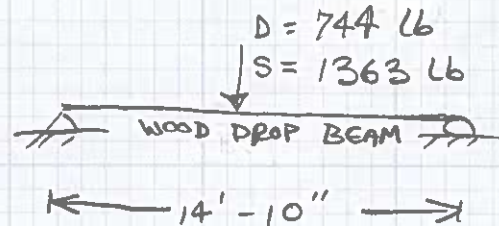 D = 744 lb
S = 1363 lb
WOOD DROP BEAM
14' - 10"